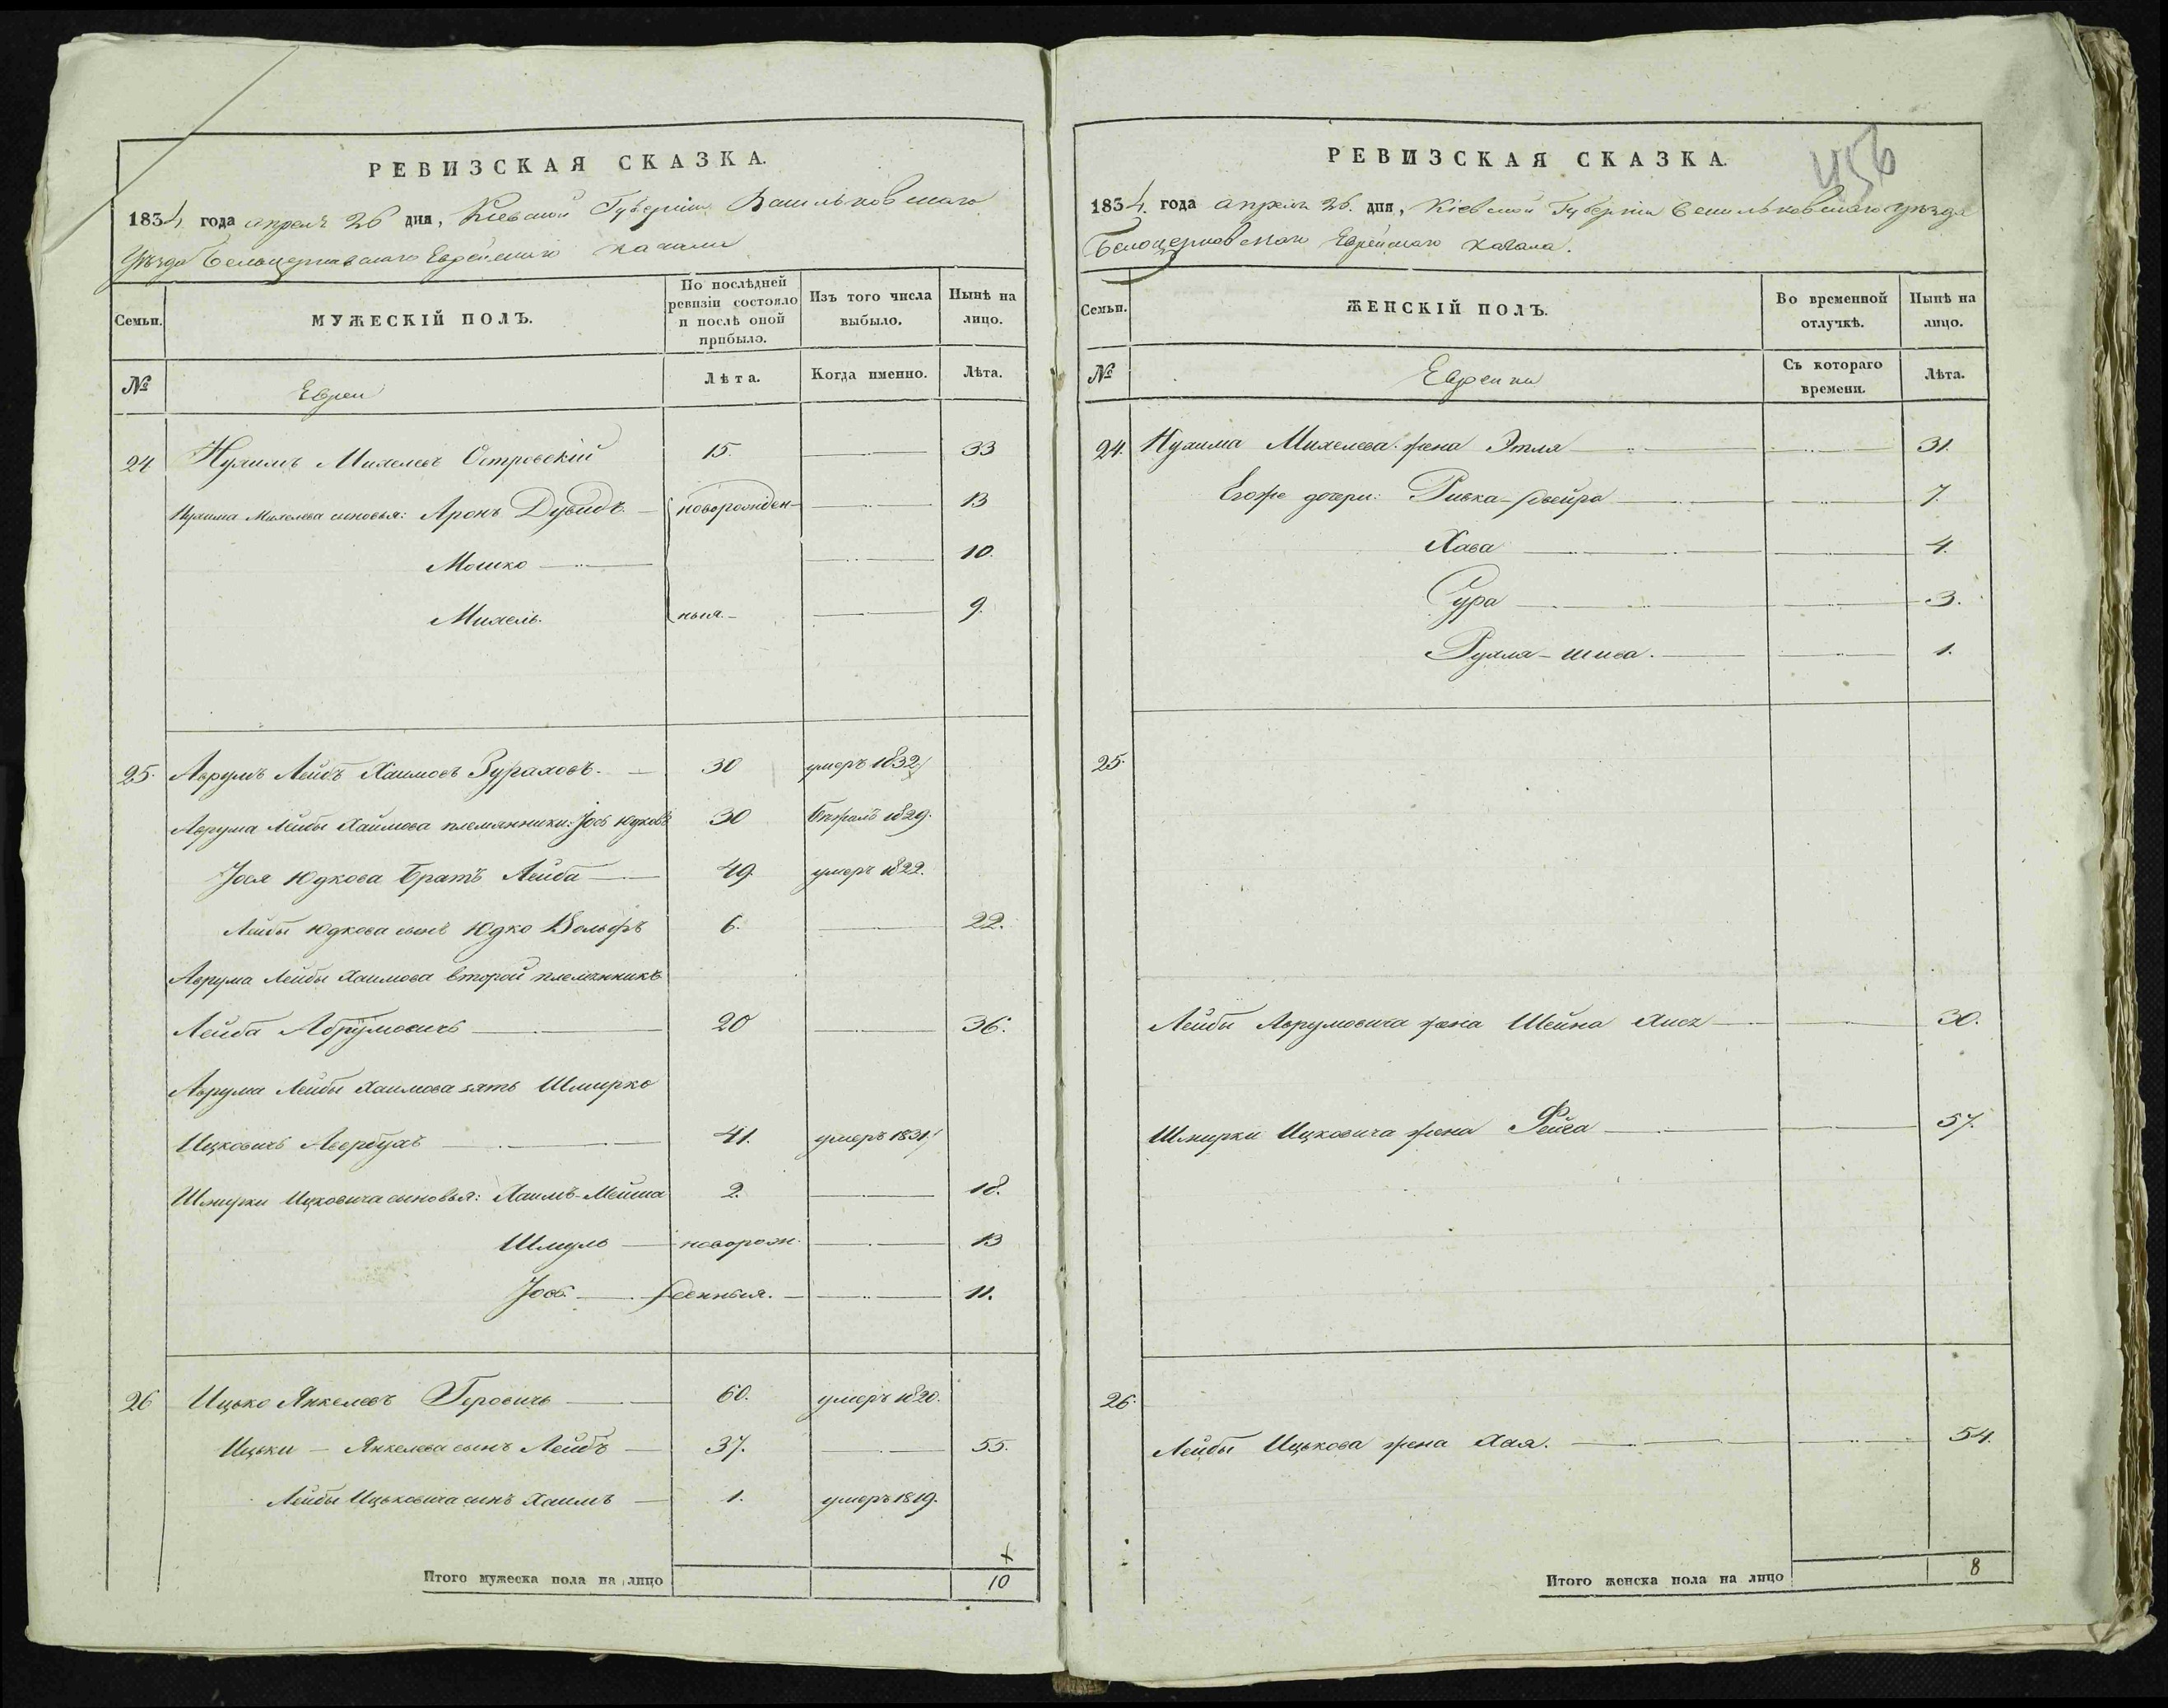 РЕВИЗСКАЯ СКАЗКА.
1834 года апреля 26 дня, Кіевской Губерніи Васильковскаго
уѣзда Белоцерковскаго Еврейскаго кагала
Семьи.
МУЖЕСКІЙ ПОЛЪ.
По послѣдней ревизіи состояло и послѣ оной прибыло.
Изъ того числа выбыло.
Нынѣ на лицо.
№
Евреи
Лѣта.
Когда именно.
Лѣта.
24 Нухимъ Михелевъ Островскій 15. 33
Нухима Михелева сыновья: Аронъ Дувидъ. новорожден- 13
Мошко 10.
Михель. ныя. 9.
25. Аврумъ Лейбъ Хаимовъ 30 умеръ 1832
Аврума Лейбы Хаимова племянники: Јось Юдковъ 30 бѣжалъ 1829.
Јося Юдкова братъ Лейба 49. умеръ 1822.
Лейбы Юдкова сынъ Юдко Вольфъ 6. 22.
Аврума Лейбы Хаимова второй племянникъ
Лейба Абрумовичъ 20 36.
Аврума Лейбы Хаимова зять Шмирко
Ицковичъ Авербухъ 41. умеръ 1831
Шмирки Ицковича сыновья: Хаимъ-Мейша 2. 18.
Шмуль новорож- 13
Јось денныя. 11.
26 Ицько Янкелевъ Геровичь 60. умеръ 1820.
Ицьки - Янкелева сынъ Лейбъ 37. 55.
Лейбы Ицьковича сынъ Хаимъ 1. умеръ 1819.
Итого мужеска пола на лицо 10
456
РЕВИЗСКАЯ СКАЗКА.
1834. года апреля 26. дня, Кіевской Губерніи Васильковскаго уѣзда
Белоцерковскаго Еврейскаго кагала.
Семьи.
ЖЕНСКІЙ ПОЛЪ.
Во временной отлучкѣ.
Нынѣ на лицо.
№
Еврейки
Съ котораго времени.
Лѣта.
24. Нухима Михелева жена Этля 31.
Егоже дочери: Ривка-Двейра 7.
Хава 4.
Сура 3.
Рухля- 1.
25.
Лейбы Аврумовича жена Шейна 30.
Шмирки Ицковича жена Фейга 57.
26.
Лейбы Ицькова жена Хая. 54.
Итого женска пола на лицо 8